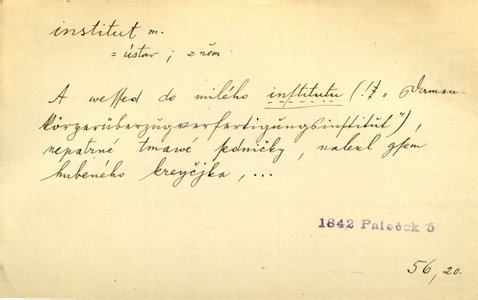 institut m.
= ústav ; z něm.
A wessed do milého institutu ( " Permen-
körgerüberzugverfertigungsinstitut"),
nepatrné tmawé jedničky, nalezl gsem
hubeného kreyčjka, ...
1842 Paleček 5
56, 20.